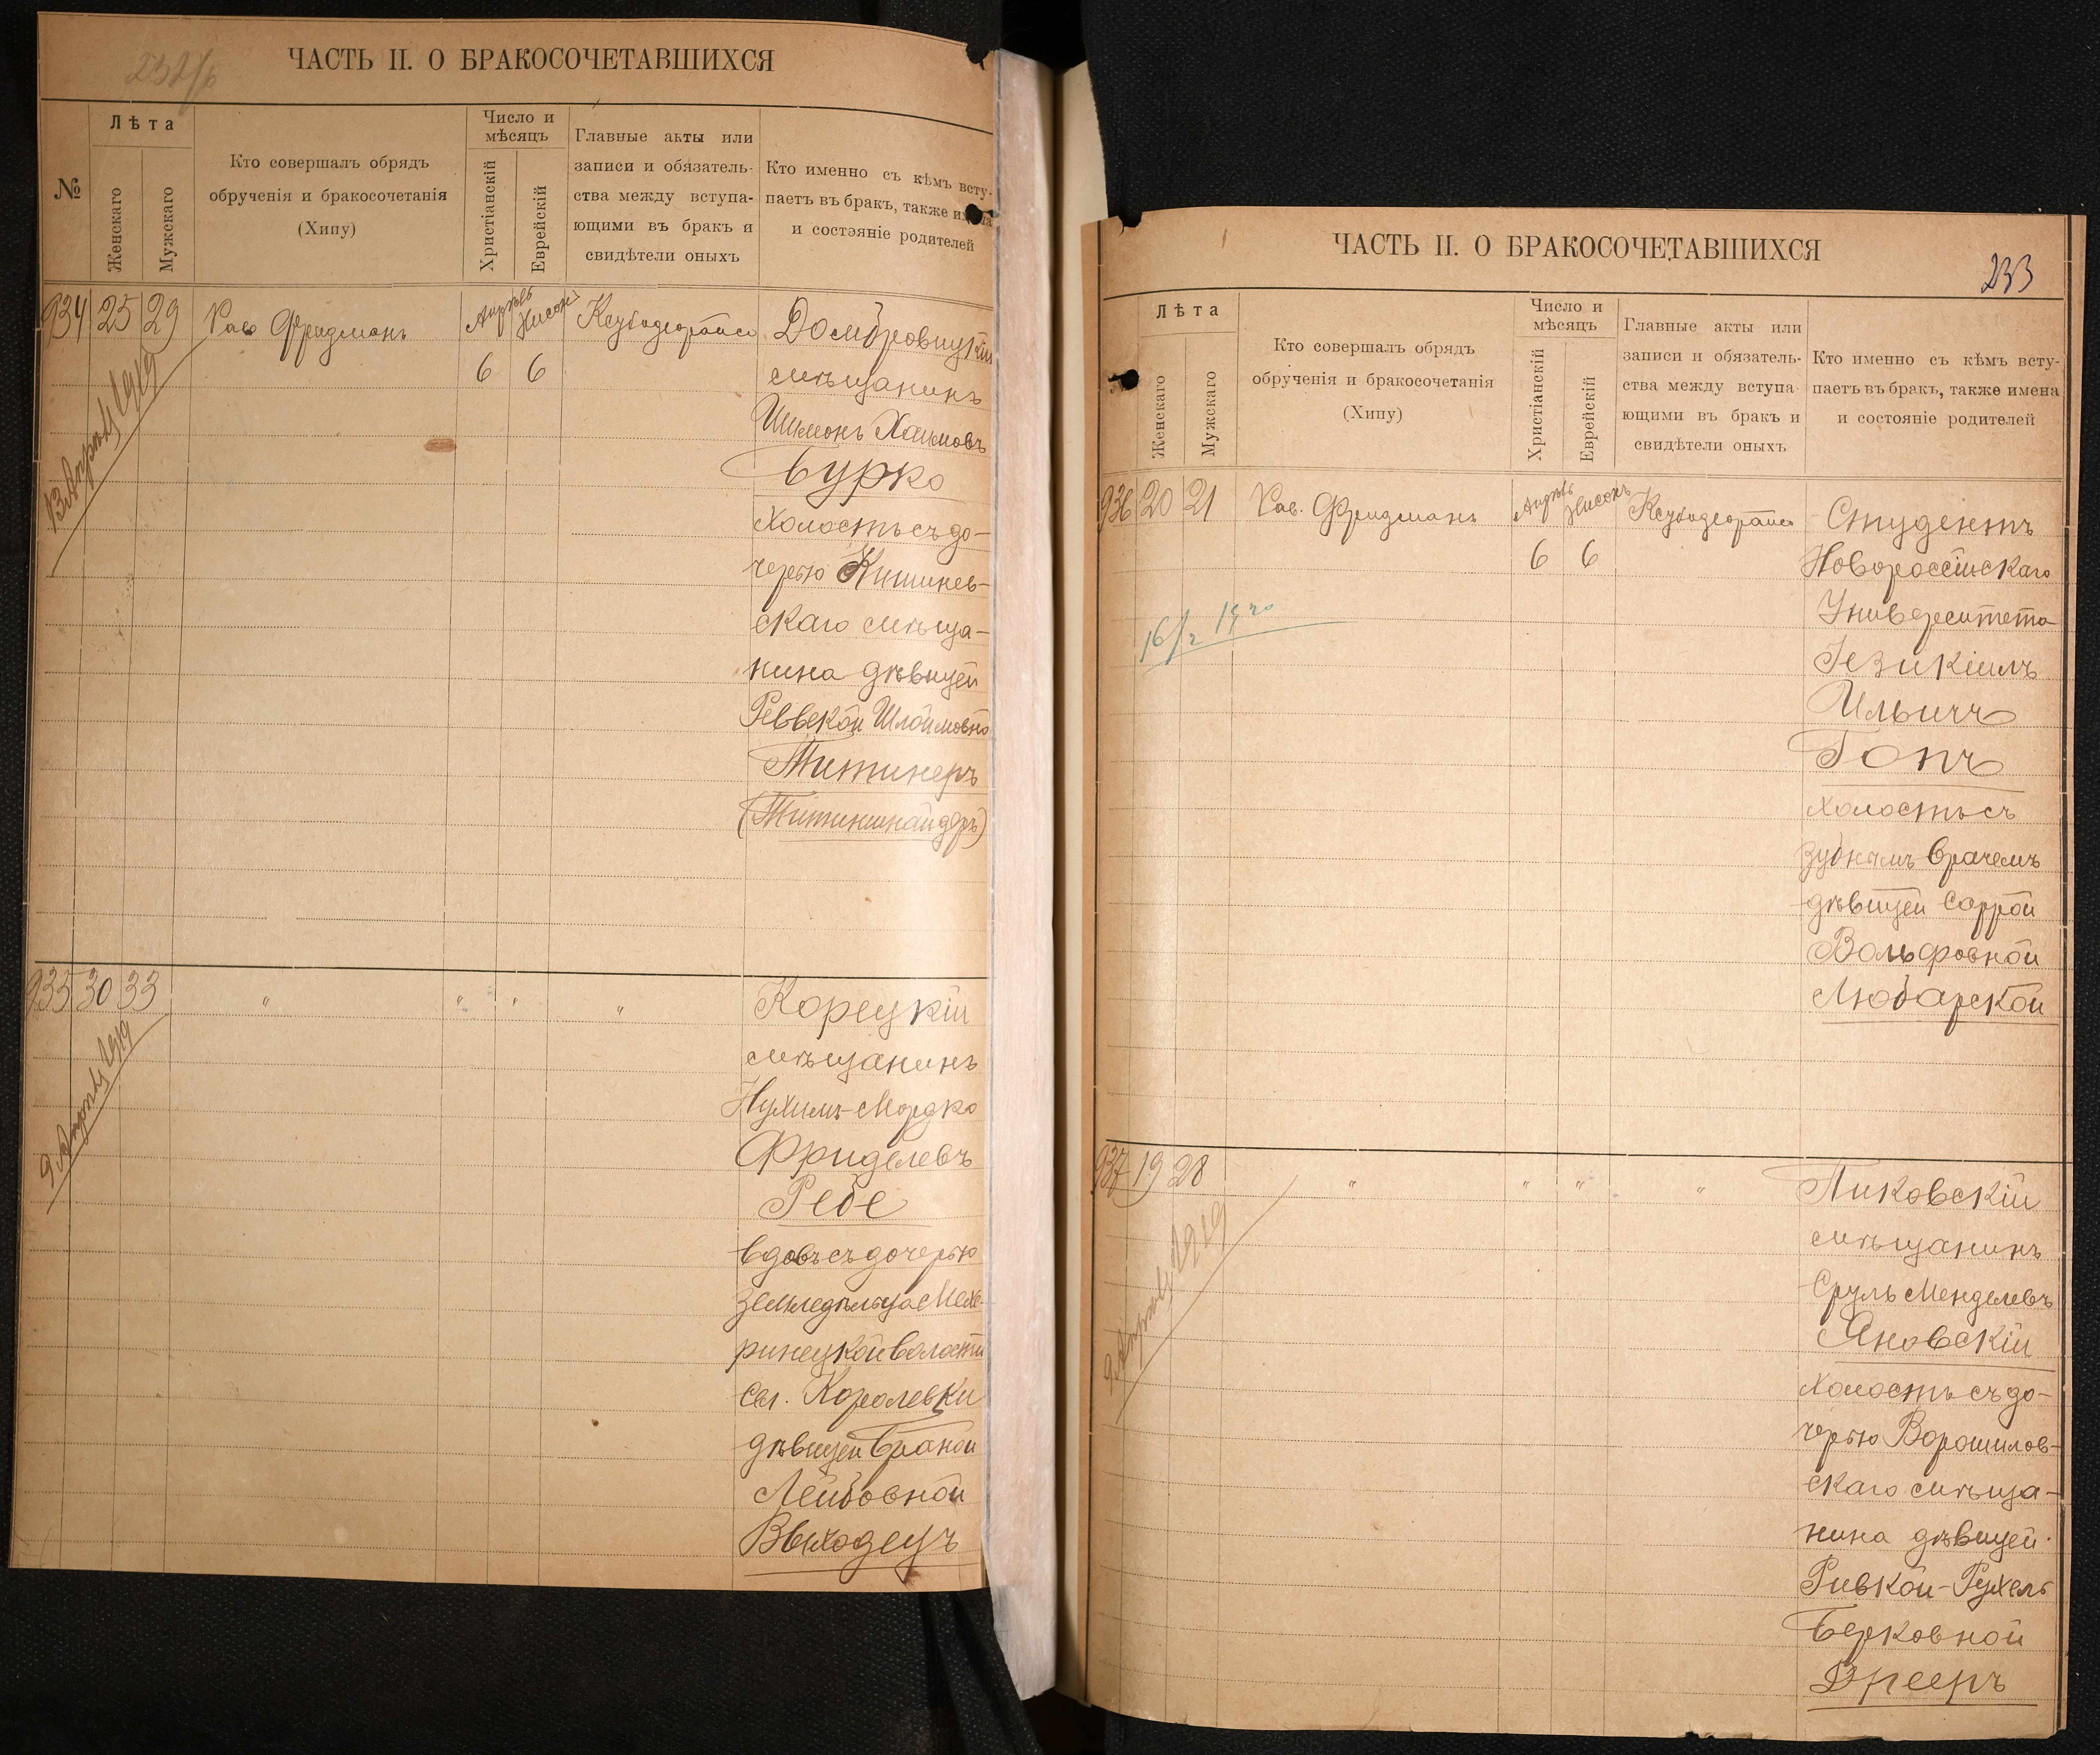 232/б
ЧАСТЬ II. О БРАКОСОЧЕТАВШИХСЯ
№
Лѣта
Женскаго
Мужскаго
Кто совершалъ обрядъ
обрученія и бракосочетанія
(Хипу)
Число и
мѣсяцъ
Христіанскій
Еврейскій
Главные акты или
записи и обязатель-
ства между вступа-
ющими въ бракъ и
свидѣтели оныхъ
Кто именно съ кѣмъ всту-
паетъ въ бракъ, также имена
и состояніе родителей
934 25 29 Рав Фридманъ Апрѣль Нисонъ
6 6
13 Апрѣль 1919
Домбровицкій
мѣщанинъ
Шимонъ Хаимовъ
Бурко
холостъ съ до-
черью Кишинев-
скаго мѣща-
нина дѣвицей
Реввекой Шлоимовной
Титинеръ
935 30 33 " " " "
9 Апрѣль 1919
Корецкій
мѣщанинъ
Нухимъ-Мордко
Фриделевъ
Ребе
вдовъ съ дочерью
земледѣльца Меже-
ринецкой волости
сел. Королевки
дѣвицей Браной
Лейбовной
Выходецъ
ЧАСТЬ II. О БРАКОСОЧЕТАВШИХСЯ
233
Лѣта
Женскаго
Мужскаго
Кто совершалъ обрядъ
обрученія и бракосочетанія
(Хипу)
Число и
мѣсяцъ
Христіанскій
Еврейскій
Главные акты или
записи и обязатель-
ства между вступа-
ющими въ бракъ и
свидѣтели оныхъ
Кто именно съ кѣмъ всту-
паетъ въ бракъ, также имена
и состояніе родителей
936 20 21 Рав. Фридманъ Апрѣль Нисонъ
6 6
16/2 1920
Студентъ
Новороссійскаго
Университета
Іезикіиль
Ильичъ
Гопъ
холостъ съ
зубнымъ врачемъ
дѣвицей Саррой
Вольфовной
Любарской
937 19 28 " " " "
9 Апрѣль 1919
Пиковскій
мѣщанинъ
Сруль Менделевъ
Яновскій
холостъ съ до-
черью Ворошилов-
скаго мѣща-
нина дѣвицей
Ривкой-Рухель
Берковной